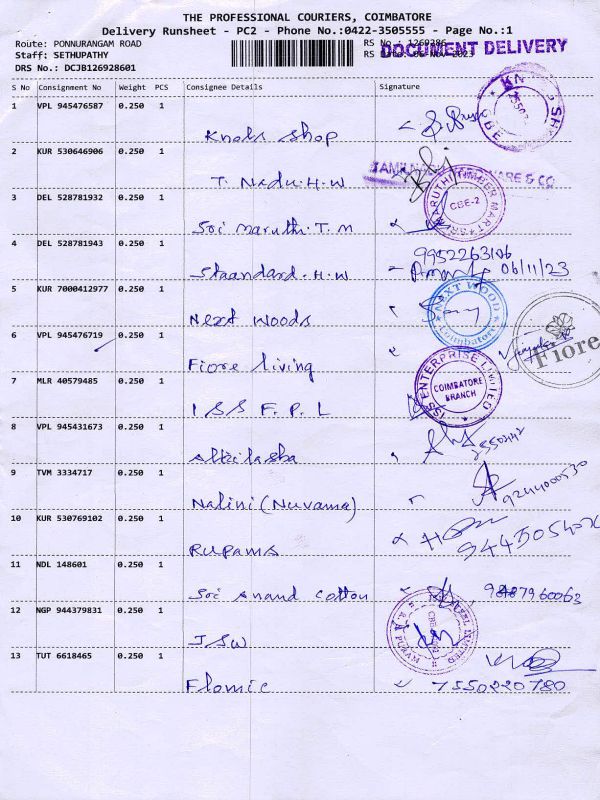 THE PROFESSIONAL COURIERS, COIMBATORE
Delivery Runsheet - PC2 - Phone No.:0422-3505555 - Page No.:1
Route: PONNURANGAM ROAD
Staff: SETHUPATHY
DRS No.: DCJB126928601
RS No.: 1269286
RS Date: 06-NOV-2023
DOCUMENT DELIVERY
S No Consignment No Weight PCS Consignee Details Signature
1 VPL 945476587 0.250 1
Knols Shop
2 KUR 530646906 0.250 1
T. Nadu. H.W
3 DEL 528781932 0.250 1
Sri Maruthi. T. M
MARUTHI TIMBER MART
CBE-2
4 DEL 528781943 0.250 1
Staandard. H.W
9952263106
06/11/23
5 KUR 7000412977 0.250 1
Next Woods
NEXT WOOD
Coimbatore
6 VPL 945476719 0.250 1
Fiore living
Fiore
7 MLR 40579485 0.250 1
I S S F. P. L
ENTERPRISE LIMITED
COIMBATORE
BRANCH
8 VPL 945431673 0.250 1
9 TVM 3334717 0.250 1
Nalini (Nuvama)
9244000530
10 KUR 530769102 0.250 1
Rupams
11 NDL 148601 0.250 1
Sri Anand Cotton
12 NGP 944379831 0.250 1
JSW
13 TUT 6618465 0.250 1
Flomic
7550220780